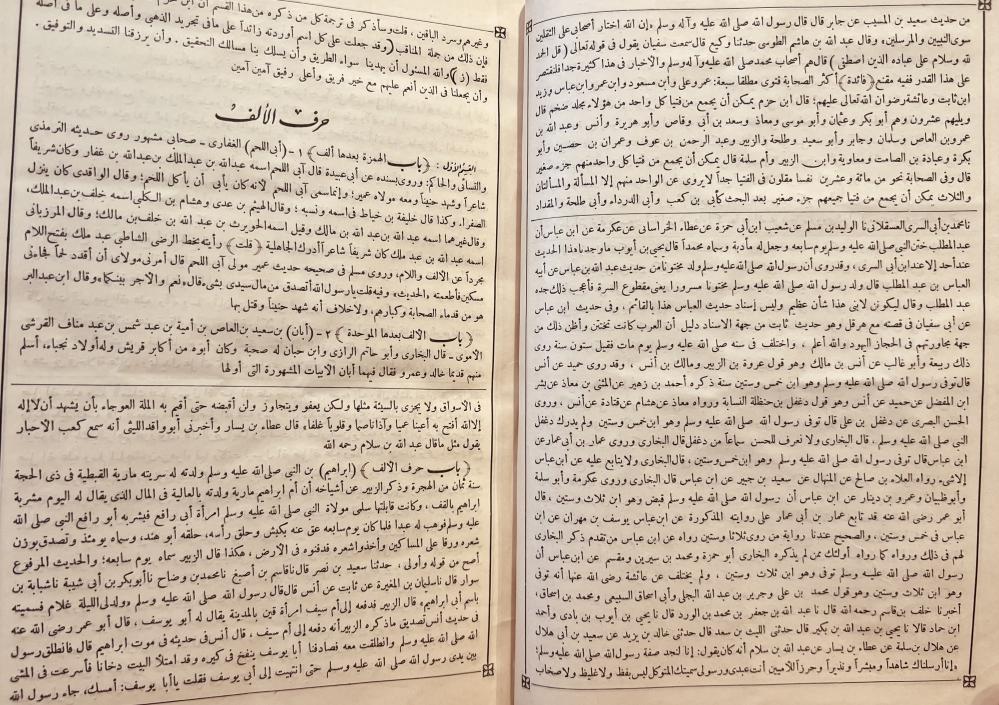 من حديث سعيد بن المسيب عن جابر قال قال رسول الله صلى الله عليه وآله وسلم «إن الله اختار أصحابى على الثقلين
سوى النبيين والمرسلين» وقال عبد الله بن هاشم الطوسى حدثنا وكيع قال سمعت سفيان يقول فى قوله تعالى (قل الحمد
لله وسلام على عباده الذين اصطفى) قال هم أصحاب محمد صلى الله عليه وآله وسلم والأخبار فى هذا كثيرة جدا فلنقتصر
على هذا القدر ففيه مقنع (فائدة) أكثر الصحابة فتوى مطلقا سبعة: عمر وعلى وابن مسعود وابن عمر وابن عباس وزيد
ابن ثابت وعائشة رضوان الله تعالى عليهم؛ قال ابن حزم يمكن أن يجمع من فتيا كل واحد من هؤلاء مجلد ضخم قال
ويليهم عشرون وهم أبو بكر وعثمان وأبو موسى ومعاذ وسعد بن أبى وقاص وأبو هريرة وأنس وعبد الله بن
عمرو بن العاص وسلمان وجابر وأبو سعيد وطلحة والزبير وعبد الرحمن بن عوف وعمران بن حصين وأبو
بكرة وعبادة بن الصامت ومعاوية وابن الزبير وأم سلمة قال يمكن أن يجمع من فتيا كل واحد منهم جزء صغير
قال وفى الصحابة نحو من مائة وعشرين نفسا مقلون فى الفتيا جداً لا يروى عن الواحد منهم إلا المسألة والمسألتان
والثلاث يمكن أن يجمع من فتيا جميعهم جزء صغير بعد البحث كأبى بن كعب وأبى الدرداء وأبى طلحة والمقداد
نا محمد بن أبى السرى العسقلانى نا الوليد بن مسلم عن شعيب ابن أبى حمزة عن عطاء الخراسانى عن عكرمة عن ابن عباس أن
عبد المطلب ختن النبى صلى الله عليه وسلم يوم سابعه وجعل له مأدبة وسماه محمداً قال يحيى بن أيوب ما وجدنا هذا الحديث
عند أحد إلا عند ابن أبى السرى، وقد روى أن رسول الله صلى الله عليه وسلم ولد مختونا من حديث عبد الله بن عباس عن أبيه
العباس بن عبد المطلب قال ولد رسول الله صلى الله عليه وسلم مختونا مسرورا يعنى مقطوع السرة فأعجب ذلك جده
عبد المطلب وقال ليكونن لابنى هذا شأن عظيم وليس إسناد حديث العباس هذا بالقائم، وفى حديث ابن عباس
عن أبى سفيان فى قصته مع هرقل وهو حديث ثابت من جهة الاسناد دليل أن العرب كانت تختتن وأظن ذلك من
جهة مجاورتهم فى الحجاز اليهود والله أعلم، واختلف فى سنه صلى الله عليه وسلم يوم مات فقيل ستون سنة روى
ذلك ربيعة وأبو غالب عن أنس بن مالك وهو قول عروة بن الزبير ومالك بن أنس، وقد روى حميد عن أنس
قال توفى رسول الله صلى الله عليه وسلم وهو ابن خمس وستين سنة ذكره أحمد بن زهير عن المثنى بن معاذ عن بشر
ابن المفضل عن حميد عن أنس وهو قول دغفل بن حنظلة النسابة ورواه معاذ عن هشام عن قتادة عن أنس، وروى
الحسن البصرى عن دغفل بن على قال توفى رسول الله صلى الله عليه وسلم وهو ابن خمس وستين ولم يدرك دغفل
النبى صلى الله عليه وسلم، قال البخارى ولا نعرف للحسن سماعاً من دغفل قال البخارى وروى عمار بن أبى عمار عن
ابن عباس قال توفى رسول الله صلى الله عليه وسلم وهو ابن خمس وستين، قال البخارى ولا يتابع عليه عن ابن عباس
إلا شىء رواه العلاء بن صالح عن المنهال عن سعيد بن جبير عن ابن عباس قال البخارى وروى عكرمة وأبو سلمة
وأبو ظبيان وعمرو بن دينار عن ابن عباس أن رسول الله صلى الله عليه وسلم قبض وهو ابن ثلاث وستين، قال
أبو عمر رضى الله عنه قد تابع عمار بن أبى عمار على روايته المذكورة عن ابن عباس يوسف بن مهران عن ابن
عباس فى خمس وستين، والصحيح عندنا رواية من روى ثلاثا وستين رواه عن ابن عباس من تقدم ذكر البخارى
لهم فى ذلك ورواه كما رواه أولئك ممن لم يذكره البخارى أبو حمزة ومحمد بن سيرين ومقسم عن ابن عباس أن
رسول الله صلى الله عليه وسلم توفى وهو ابن ثلاث وستين، ولم يختلف عن عائشة رضى الله عنها أنه توفى
وهو ابن ثلاث وستين وهو قول محمد بن على وجرير بن عبد الله البجلى وأبى اسحاق السبيعى ومحمد بن اسحاق،
أخبرنا خلف بن قاسم رحمه الله قال نا عبد الله بن جعفر بن محمد بن الورد قال نا يحيى بن أيوب بن بادى وأحمد
ابن حماد قالا نا يحيى بن عبد الله بن بكير قال حدثنى الليث بن سعد قال حدثنى خالد بن يزيد عن سعيد بن أبى هلال
عن هلال بن سلمة عن عطاء بن يسار عن عبد الله بن سلام أنه كان يقول: إنا لنجد صفة رسول الله صلى الله عليه وسلم:
«إنا أرسلناك شاهداً ومبشراً ونذيراً» وحرزاً للأميين أنت عبدى ورسولى سميتك المتوكل ليس بفظ ولا غليظ ولا صخاب
وغيرهم وسرد الباقين، قلت وسأذكر فى ترجمة كل من ذكره من هذا القسم أن ابن حزم
فإن ذلك من جملة المناقب (وقد جعلت على كل اسم أوردته زائداً على ما فى تجريد الذهبى وأصله وعلى ما فى أصله
فقط (ز) والله المسئول أن يهدينا سواء الطريق وأن يسلك بنا مسالك التحقيق، وأن يرزقنا التسديد والتوفيق،
وأن يجعلنا فى الذين أنعم عليهم مع خير فريق وأعلى رفيق آمين آمين
حرف الألف
القسم الأول: (باب الهمزة بعدها ألف) ١ – (أبى اللحم) الغفارى – صحابى مشهور روى حديثه الترمذى
والنسائى والحاكم؛ وروى بسنده عن أبى عبيدة قال آبى اللحم اسمه عبد الله بن عبد الملك بن عبد الله بن غفار وكان شريفاً
شاعراً وشهد حنيناً ومعه مولاه عمير؛ وإنما سمى آبى اللحم لأنه كان يأبى أن يأكل اللحم؛ وقال الواقدى كان ينزل
الصفراء، وكذا قال خليفة بن خياط فى اسمه ونسبه؛ وقال الهيثم بن عدى وهشام بن الكلبى اسمه خلف بن عبد الملك،
وقال غيرهما اسمه عبد الله بن عبد الله بن مالك وقيل اسمه الحويرث بن عبد الله بن خلف بن مالك؛ وقال المرزبانى
اسمه عبد الله بن عبد ملك كان شريفاً شاعراً أدرك الجاهلية (قلت) رأيته بخط الرضى الشاطبى عبد ملك بفتح اللام
مجرداً عن الألف واللام، وروى مسلم فى صحيحه حديث عمير مولى آبى اللحم قال أمرنى مولاى أن أقدد لحماً فجاءنى
مسكين فأطعمته «الحديث» وفيه قلت يا رسول الله أتصدق من مال سيدى بشىء قال «نعم والاجر بينكما» وقال ابن عبد البر
هو من قدماء الصحابة وكبارهم، ولا خلاف أنه شهد حنيناً وقتل بها
(باب الألف بعدها الموحدة) ٢ – (أبان) بن سعيد بن العاص بن أمية بن عبد شمس بن عبد مناف القرشى
الاموى – قال البخارى وأبو حاتم الرازى وابن حبان له صحبة وكان أبوه من أكابر قريش وله أولاد نجباء، أسلم
منهم قديما خالد وعمرو فقال فيهما أبان الأبيات المشهورة التى أولها
فى الأسواق ولا يجزى بالسيئة مثلها ولكن يعفو ويتجاوز ولن أقبضه حتى أقيم به الملة العوجاء بأن يشهد أن لا إله
إلا الله أفتح به أعينا عميا وآذانا صما وقلوباً غلفاء قال عطاء بن يسار وأخبرنى أبو واقد الليثى أنه سمع كعب الاحبار
يقول مثل ما قال عبد الله بن سلام رحمه الله
(باب حرف الالف) (ابراهيم) بن النبى صلى الله عليه وسلم ولدته له سريته مارية القبطية فى ذى الحجة
سنة ثمان من الهجرة وذكر الزبير عن أشياخه أن أم ابراهيم مارية ولدته بالعالية فى المال الذى يقال له اليوم مشربة
ابراهيم بالقف، وكانت قابلتها سلمى مولاة النبى صلى الله عليه وسلم امرأة أبى رافع فبشر به أبو رافع النبى صلى الله
عليه وسلم فوهب له عبدا فلما كان يوم سابعه عق عنه بكبش وحلق رأسه، حلقه أبو هند، وسماه يومئذ وتصدق بوزن
شعره ورقا على المساكين وأخذوا شعره فدفنوه فى الارض، هكذا قال الزبير سماه يوم سابعه؛ والحديث المرفوع
أصح من قوله وأولى، حدثنا سعيد بن نصر قال نا قاسم بن أصبغ نا محمد بن وضاح نا أبو بكر بن أبى شيبة نا شبابة بن
سوار قال نا سليمان بن المغيرة عن ثابت عن أنس قال قال رسول الله صلى الله عليه وسلم «ولد لى الليلة غلام فسميته
باسم أبى ابراهيم» قال الزبير فدفعه إلى أم سيف امرأة قين بالمدينة يقال له أبو يوسف، قال أبو عمر رضى الله عنه
فى حديث أنس تصديق ما ذكره الزبير أنه دفعه إلى أم سيف، قال أنس فى حديثه فى موت ابراهيم قال فانطلق رسول
الله صلى الله عليه وسلم وانطلقت معه فصادفنا أبا يوسف ينفخ فى كيره وقد امتلأ البيت دخانا فأسرعت فى المشى
بين يدى رسول الله صلى الله عليه وسلم حتى انتهيت إلى أبى يوسف فقلت يا أبا يوسف: أمسك، جاء رسول الله